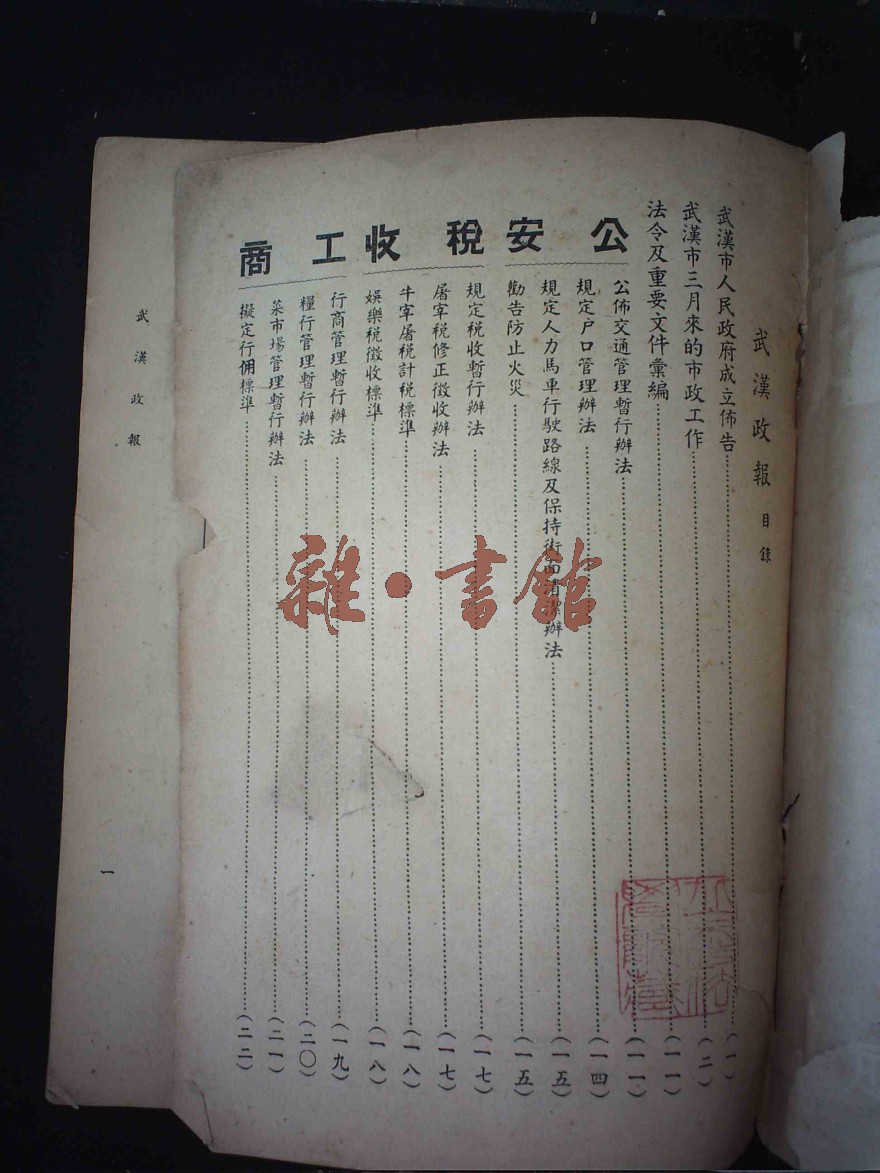 武漢政報 目錄
武漢市人民政府成立佈告…………(一)
武漢市三月來的市政工作…………(二)
法令及重要文件彙編…………(一一)
公安
公佈交通管理暫行辦法…………(一一)
規定户口管理辦法…………(一四)
規定人力馬車行駛路線及保持街面清潔辦法…………(一五)
勸告防止火災…………(一五)
稅收
規定稅收暫行辦法…………(一七)
屠宰稅修正徵收辦法…………(一七)
牛宰屠稅計稅標準…………(一八)
娛樂稅徵收標準…………(一八)
工商
行商管理暫行辦法…………(一九)
糧行管理暫行辦法…………(二〇)
菜市場管理暫行辦法…………(二一)
擬定行佣標準…………(二二)
武漢政報
一
雜·書館